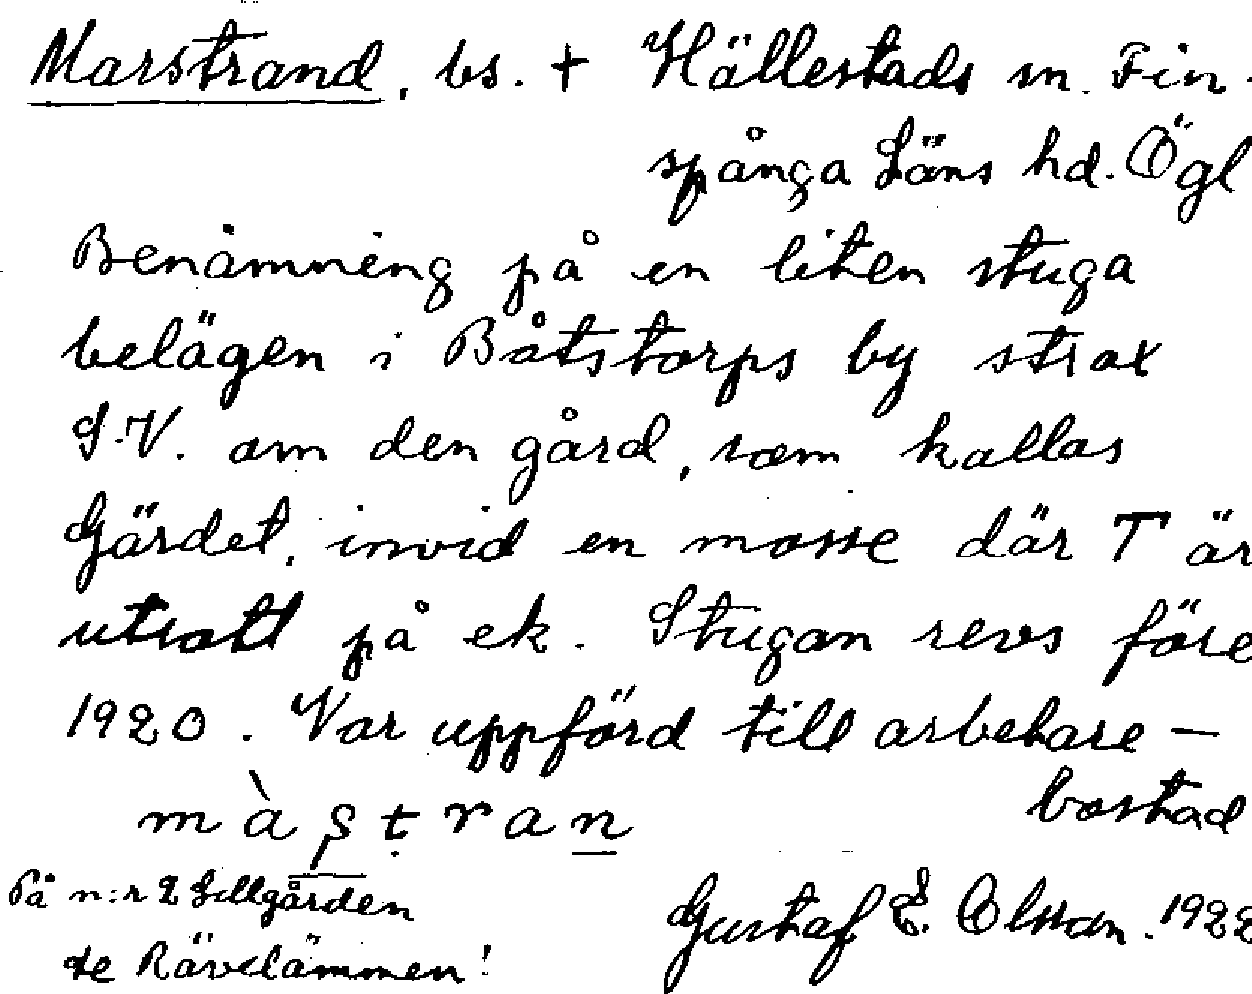 Marstrand, bs. + Hällestads sn. Fin-
spånga Läns hd. Ögl
Benämning på en liten stuga
belägen i Båtstorps by strax
S.V. om den gård, som kallas
Gärdet, invid en mosse där T är
utsatt på ek. Stugan revs före
1920. Var uppförd till arbetare-
bostad
màștran
På n:r 2 Lillgården
se Rävelämmen!
Gustaf E. Olsson. 1922